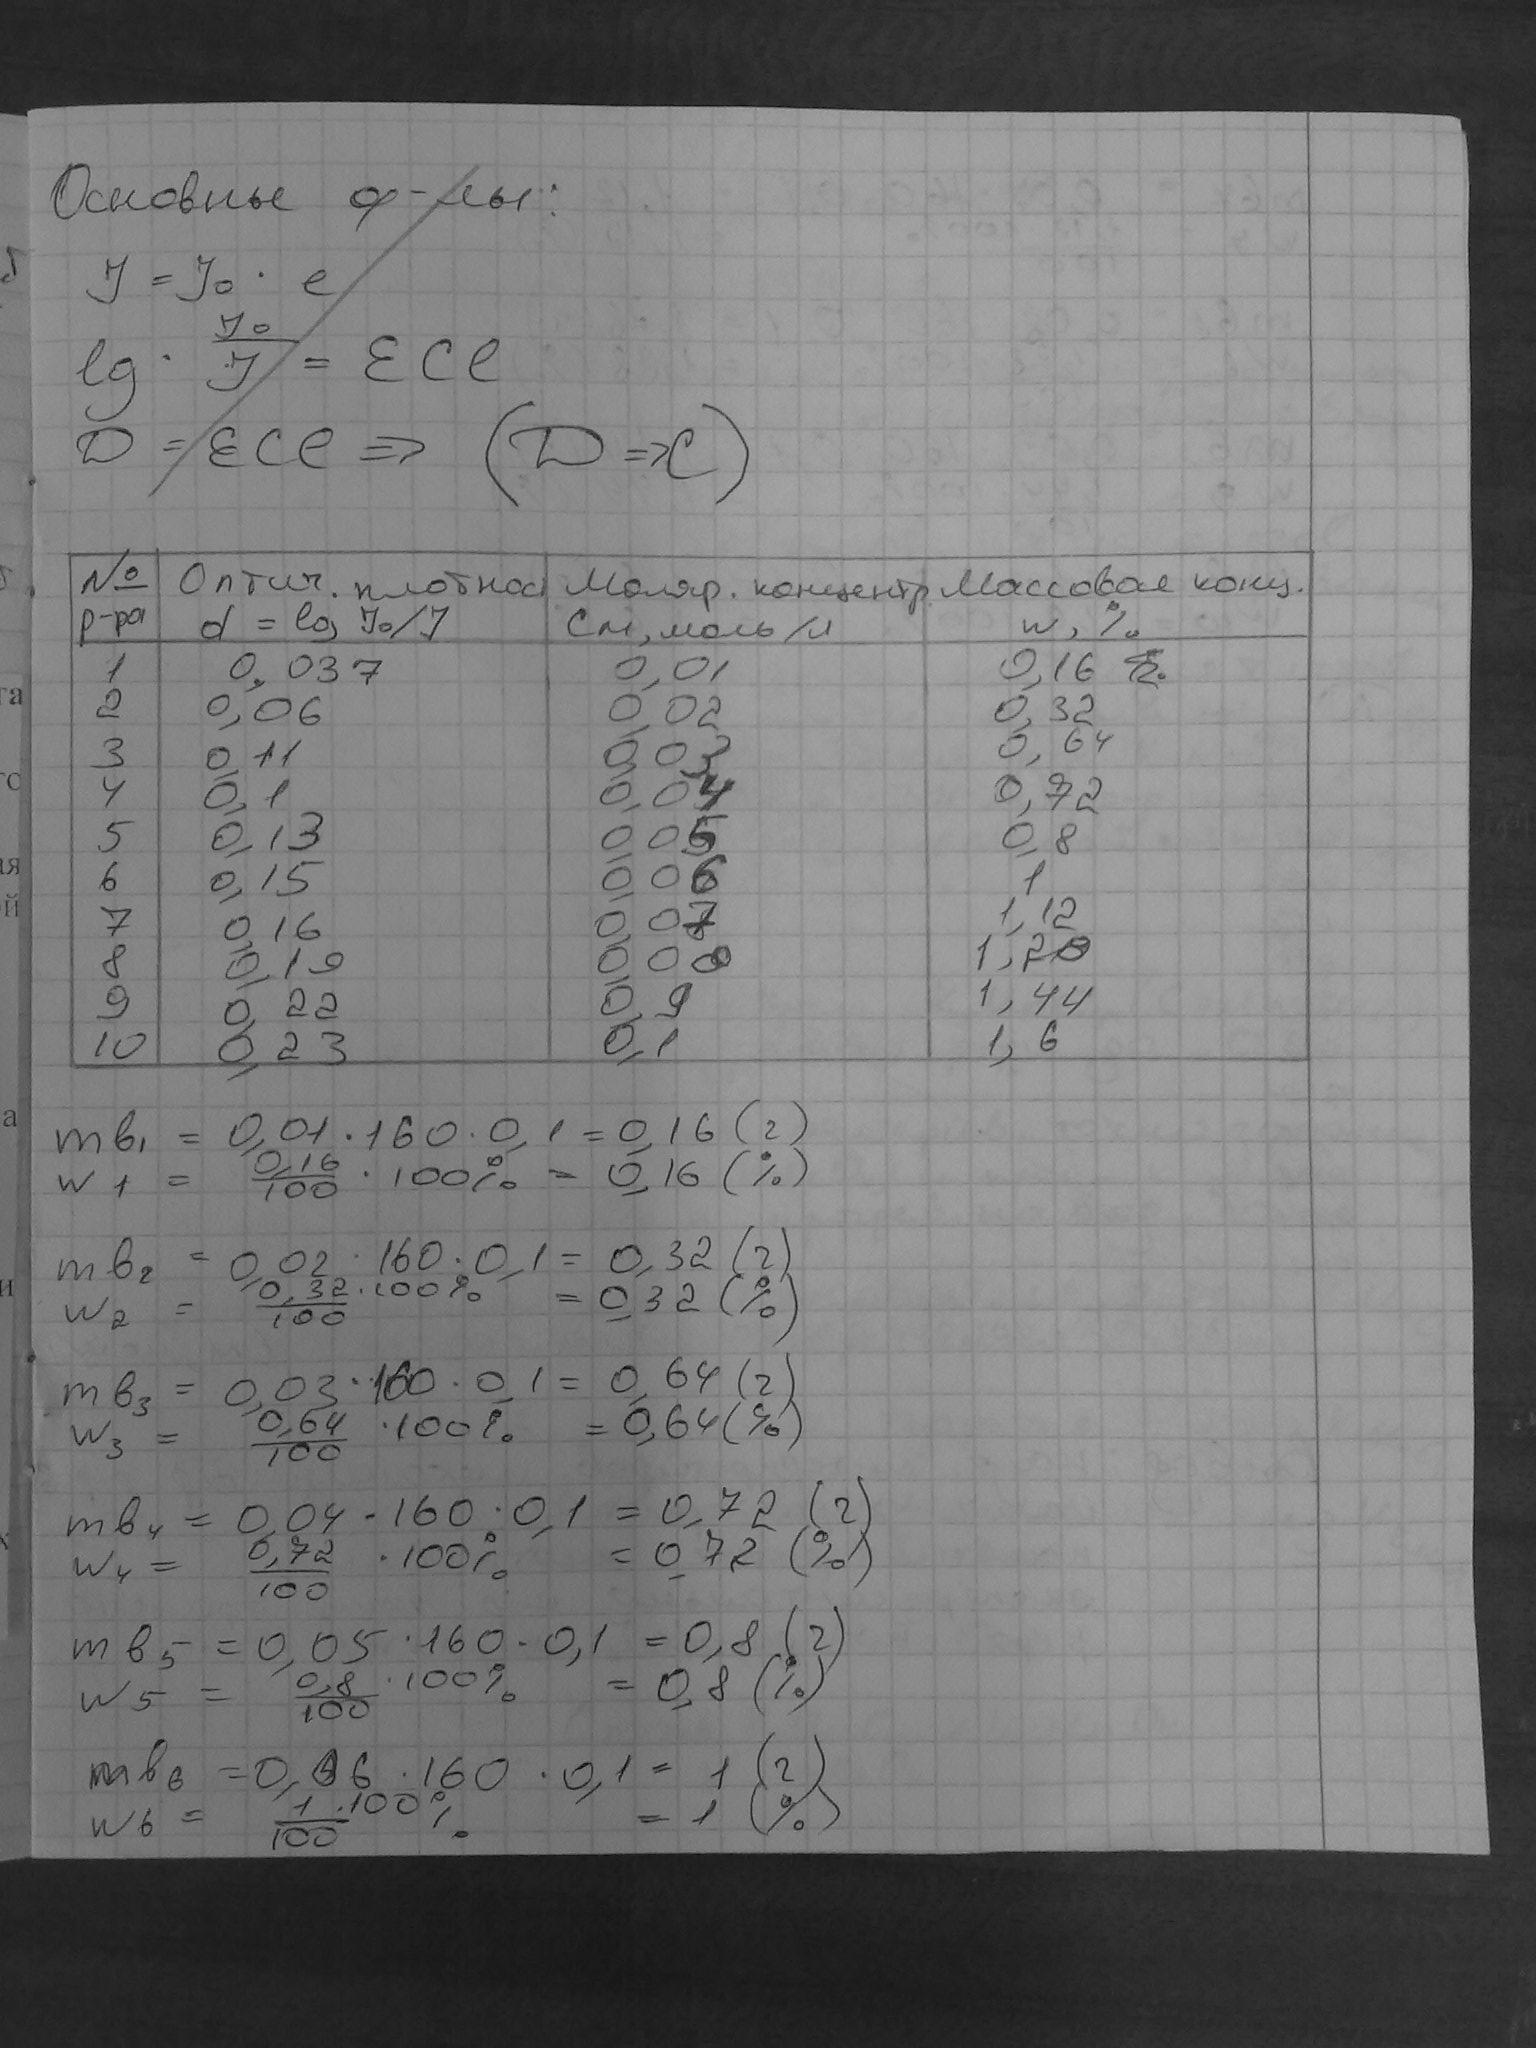 Основные ф-лы:
J = J₀ · e
lg · J₀/J = ℰCl
D = ℰCl => (D => C)
№ р-ра | Оптич. плотнос d = lg J₀/J | Моляр. концентр. См, моль/л | Массовая конц. w, %
1 0,037 0,01 0,16
2 0,06 0,02 0,32
3 0,11 0,03 0,64
4 0,1 0,04 0,72
5 0,13 0,05 0,8
6 0,15 0,06 1
7 0,16 0,07 1,12
8 0,19 0,08 1,28
9 0,22 0,9 1,44
10 0,23 0,1 1,6
mв₁ = 0,01 · 160 · 0,1 = 0,16 (г)
w1 = 0,16/100 · 100% = 0,16 (%)
mв₂ = 0,02 · 160 · 0,1 = 0,32 (г)
w₂ = 0,32/100 · 100% = 0,32 (%)
mв₃ = 0,03 · 160 · 0,1 = 0,64 (г)
w₃ = 0,64/100 · 100% = 0,64 (%)
mв₄ = 0,04 · 160 · 0,1 = 0,72 (г)
w₄ = 0,72/100 · 100% = 0,72 (%)
mв₅ = 0,05 · 160 · 0,1 = 0,8 (г)
w₅ = 0,8/100 · 100% = 0,8 (%)
mв₆ = 0,06 · 160 · 0,1 = 1 (г)
w₆ = 1/100 · 100% = 1 (%)